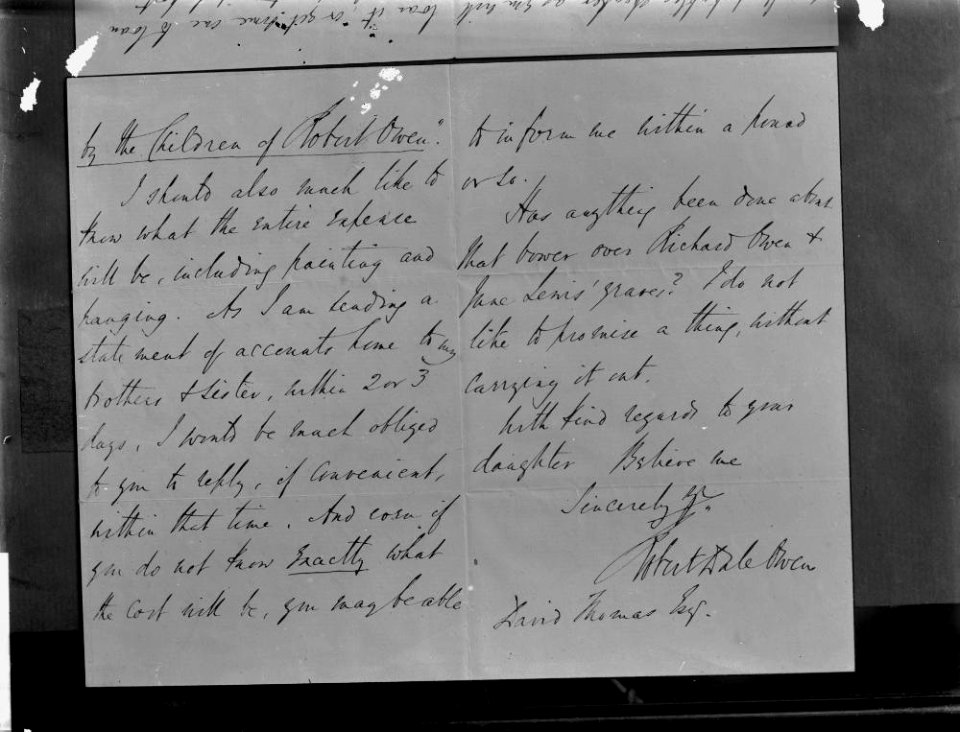 by the Children of Robert Owen".
I should also much like to
know what the entire expense
will be, including painting and
hanging. As I am sending a
statement of accounts home to my
brothers & sister, within 2 or 3
days, I would be much obliged
to you to reply, if convenient,
within that time. And even if
you do not know exactly what
the cost will be, you may be able
to inform me within a pound
or so.
Has anything been done about
that bower over Richard Owen &
Jane Lewis' graves? I do not
like to promise a thing, without
carrying it out.
With kind regards to your
daughter Believe me
Sincerely yr.
Robert Dale Owen
David Thomas Esq.